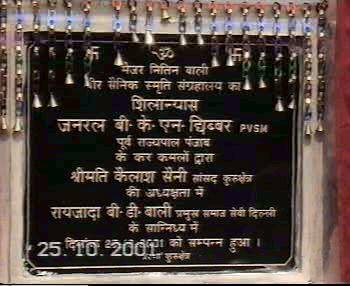 ॐ
मेजर नितिन बाली
वीर सैनिक स्मृति संग्रहालय का
शिलान्यास
जनरल बी॰ के॰ एन॰ छिब्बर PVSM
पूर्व राज्यपाल पंजाब
के कर कमलों द्वारा
श्रीमति कैलाश सैनी सांसद कुरुक्षेत्र
की अध्यक्षता में
रायजादा बी॰ डी॰ बाली प्रमुख समाज सेवी दिल्ली
के सान्निध्य में
दिनांक को सम्पन्न हुआ ।
कुरुक्षेत्र
25.10.2001